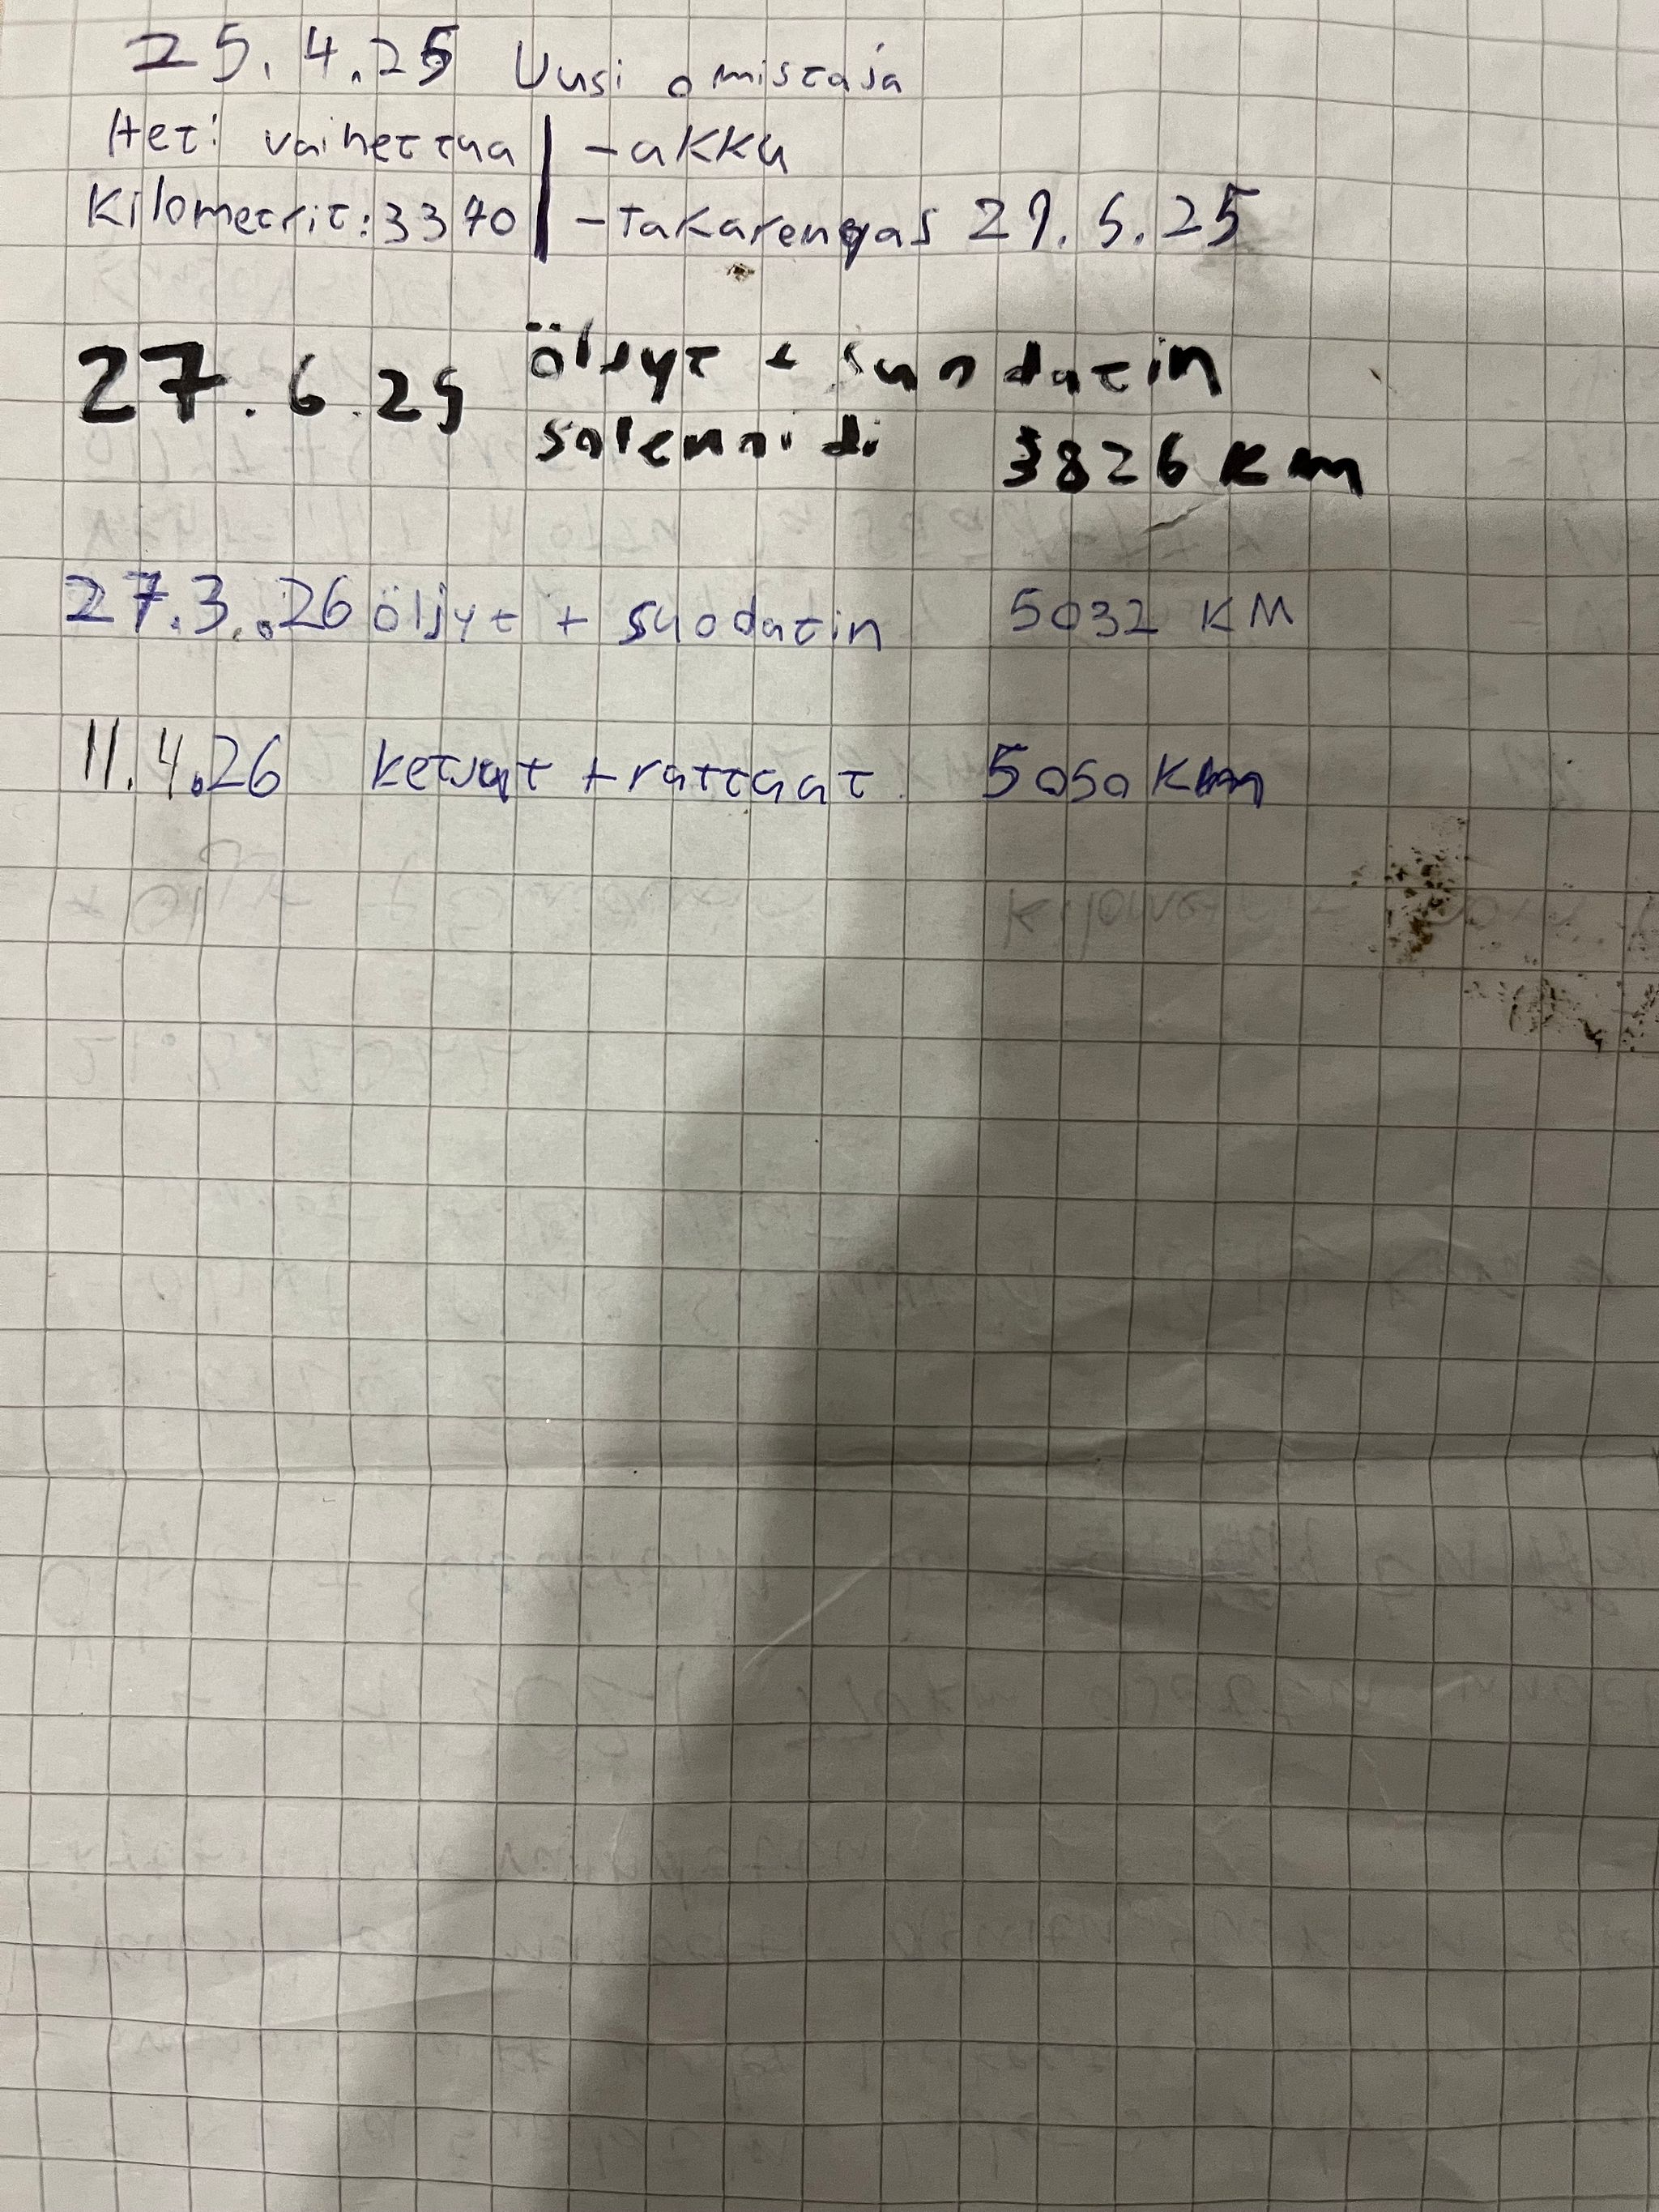 25.4.25 Uusi omistaja
Heti vaihettaa | -akku
Kilometrit: 3370 | -Takarengas 29.5.25
27.6.25 öljyt + suodatin
solenoidi 3826 km
27.3.26 öljyt + suodatin 5032 KM
11.4.26 ketjut + rattaat 5050 Km